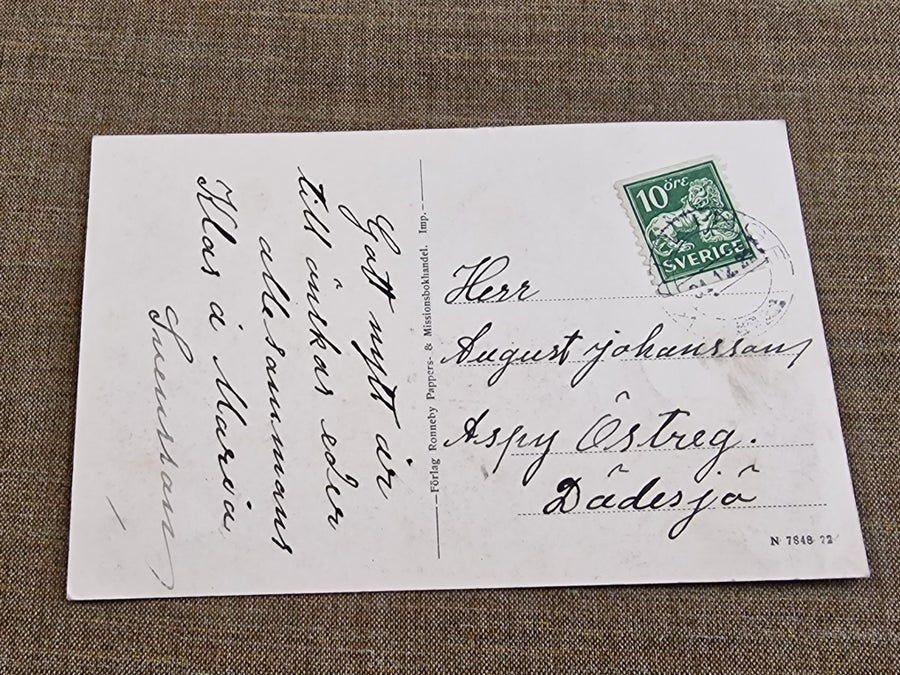 Gott nytt år
till önskas eder
allesammans
Klas å Maria
Svenssan
Förlag Ronneby Pappers- & Missionsbokhandel. Imp.
10 ÖRE
SVERIGE
Herr
August Johanssan
Aspy Östreg.
Dädesjö
N 7848 22